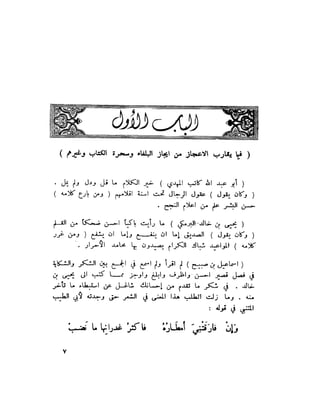 الباب الأول
( فيما يقارب الاعجاز من ايجاز البلغاء وسحرة الكتاب وغيرهم )
( أبو عبد الله كاتب المهدي ) خير الكلام ما قل ودل ولم يمل .
( وكان يقول ) عقول الرجال تحت اسنة اقلامهم ( ومن بارع كلامه )
حسن البشر علم من اعلام النجح .
( يحيى بن خالد البرمكي ) ما رأيت باكياً احسن ضحكاً من القلم
( وكان يقول ) الصديق إما ان ينفع وإما ان يشفع ( ومن غرر
كلامه ) المواعيد شباك الكرام يصيدون بها محامد الأحرار .
( اسماعيل بن صبيح ) لم اقرأ ولم اسمع في الجمع بين الشكر والشكاية
في فصل قصير احسن واظرف وابلغ واوجز مما كتب الى يحيى بن
خالد . في شكر ما تقدم من إحسانك شاغل عن استبطاء ما تأخر
منه . وما زلت اتطلب هذا المعنى في الشعر حتى وجدته لأبي الطيب
المتنبي في قوله :
وَإِنْ فارَقَتْنِيَ أَمْطَارُهُ فأكثرُ غدرانِها ما نَضَبْ
٧